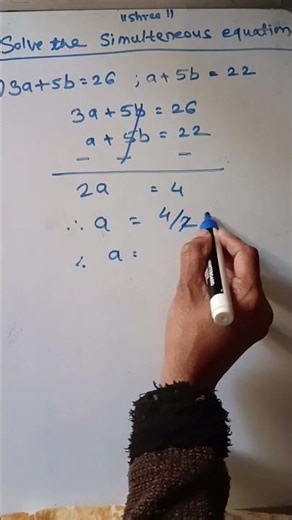 ॥ Shree ॥
Solve the Simulteneous equation
1) 3a+5b=26 ; a+5b = 22
3a + 5b = 26
a + 5b = 22
— — —
2a = 4
∴ a = 4/2
∴ a =